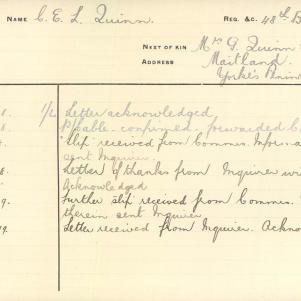 NAME C. E. L. Quinn. REG. &C. 48th B
NEXT OF KIN Mr G. Quinn
ADDRESS Maitland.
Yorke's Penin
8. 1/2 Letter acknowledged
P/Cable. confirmed, forwarded C
"Slip" received from Commrs. Informa
sent Inquirer.
8. Letter of thanks from Inquirer wi
Acknowledged
9. Further slip received from Commrs.
therein sent Inquirer
19. Letter received from Inquirer. Ackno